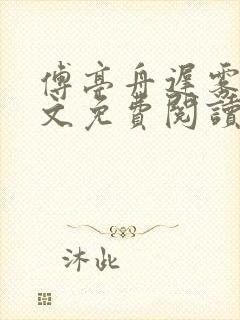 傅亭舟遲霧
文免費閱讀
沐此